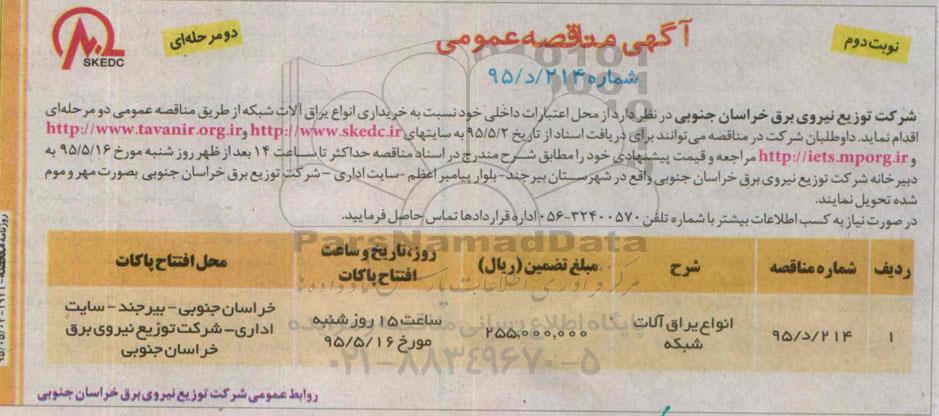 نوبت دوم
آگهی مناقصه عمومی
دو مرحله‌ای
SKEDC
شماره ۹۵/د/۲۱۴
شرکت توزیع نیروی برق خراسان جنوبی در نظر دارد از محل اعتبارات داخلی خود نسبت به خریداری انواع یراق آلات شبکه از طریق مناقصه عمومی دو مرحله‌ای
اقدام نماید. داوطلبان شرکت در مناقصه می‌توانند برای دریافت اسناد از تاریخ ۹۵/۵/۲ به سایتهای http://www.skedc.ir و http://www.tavanir.org.ir
و http://iets.mporg.ir مراجعه و قیمت پیشنهادی خود را مطابق شرح مندرج در اسناد مناقصه حداکثر تا ساعت ۱۴ بعد از ظهر روز شنبه مورخ ۹۵/۵/۱۶ به
دبیرخانه شرکت توزیع نیروی برق خراسان جنوبی واقع در شهرستان بیرجند- بلوار پیامبر اعظم -سایت اداری - شرکت توزیع برق خراسان جنوبی بصورت مهر و موم
شده تحویل نمایند.
در صورت نیاز به کسب اطلاعات بیشتر با شماره تلفن ۳۲۴۰۰۵۷۰-۰۵۶ اداره قراردادها تماس حاصل فرمایید.
ParsNamadData
ردیف شماره مناقصه شرح مبلغ تضمین (ریال) روز، تاریخ و ساعت افتتاح پاکات محل افتتاح پاکات
مرکز فرآوری اطلاعات پارس نماد داده ها
۱ ۹۵/د/۲۱۴ انواع یراق آلات شبکه ۲۵۵,۰۰۰,۰۰۰ ساعت ۱۵ روز شنبه مورخ ۹۵/۵/۱۶ خراسان جنوبی - بیرجند - سایت اداری - شرکت توزیع نیروی برق خراسان جنوبی
۰۲۱-۸۸۳۴۹۶۷۰-۵
روابط عمومی شرکت توزیع نیروی برق خراسان جنوبی